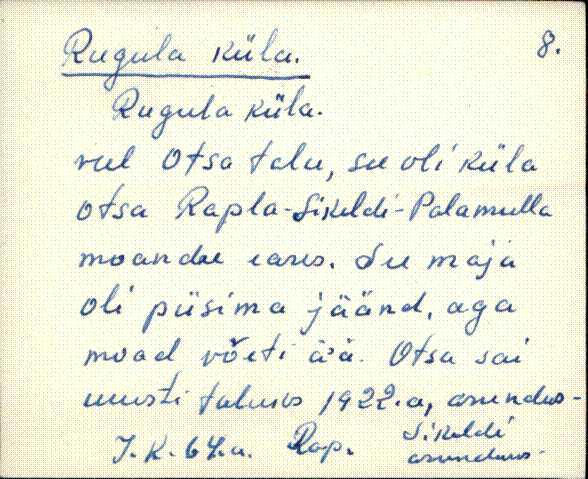 Rugula küla. 8.
Rugula küla.
veel Otsa talu, see oli küla
otsa Rapla-Sikeldi-Palamulla
moandee eares. See maja
oli püsima jäänd, aga
moad võeti ää. Otsa sai
uuesti taluss 1922.a, asundus-
J.K. 64.a. Rap. Sikeldi
asunduss.